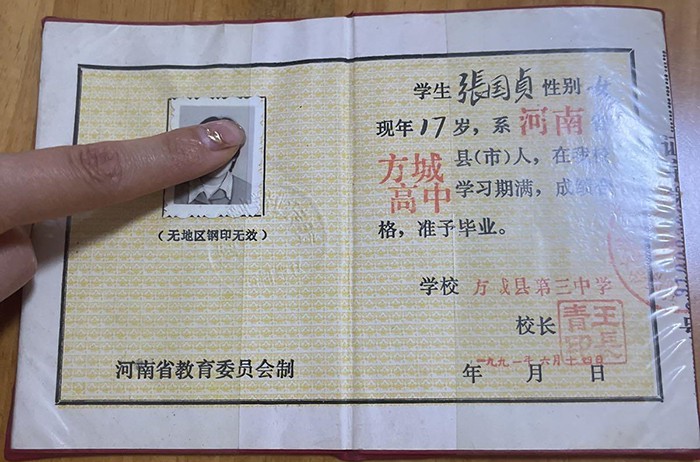 学生 張国贞 性别 女
现年17岁，系 河南省
方城 县(市)人，在我校
高中 学习期满，成绩合
格，准予毕业。
(无地区钢印无效)
学校 方城县第三中学
校长 王長青印
一九九一年六月十四日
河南省教育委员会制
年 月 日